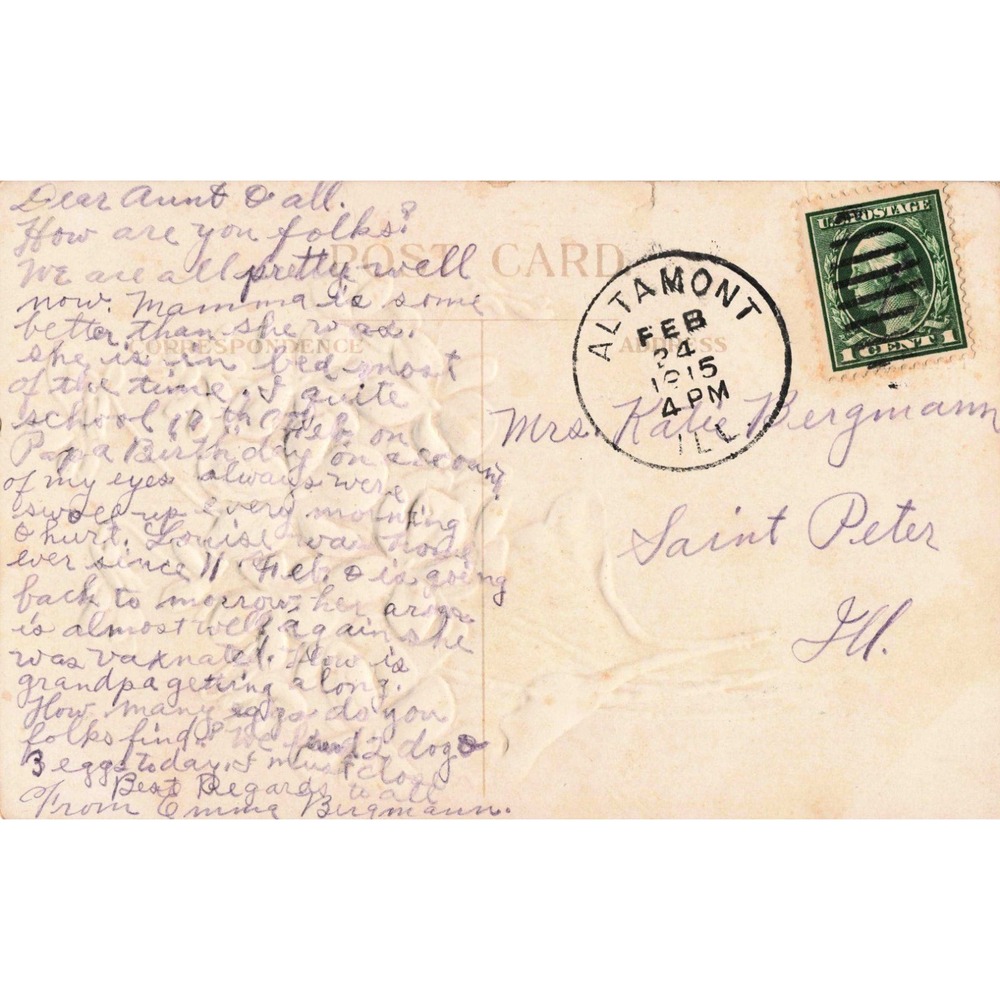 Dear Aunt & all.
How are you folks?
We are all pretty well
now. Mamma is some
better than she was.
she is in bed most
of the time. I quite
school 17th Feb. on
Papa Birthday on account
of my eyes always were
swoll up every morning
& hurt. Louise was home
ever since 11 Feb. & is going
back to morrow her arm
is almost well again she
was vaxnated. How is
grandpa getting along.
How many eggs do you
folks find? We 12 dog &
3 eggs today. I must close
Best Regards to all
From Emma Bergmann.
POST CARD
CORRESPONDENCE
ADDRESS
ALTAMONT
FEB
24
1915
4 PM
ILL
U.S. POSTAGE
1 CENT 1
Mrs. Katie Bergmann
Saint Peter
Ill.